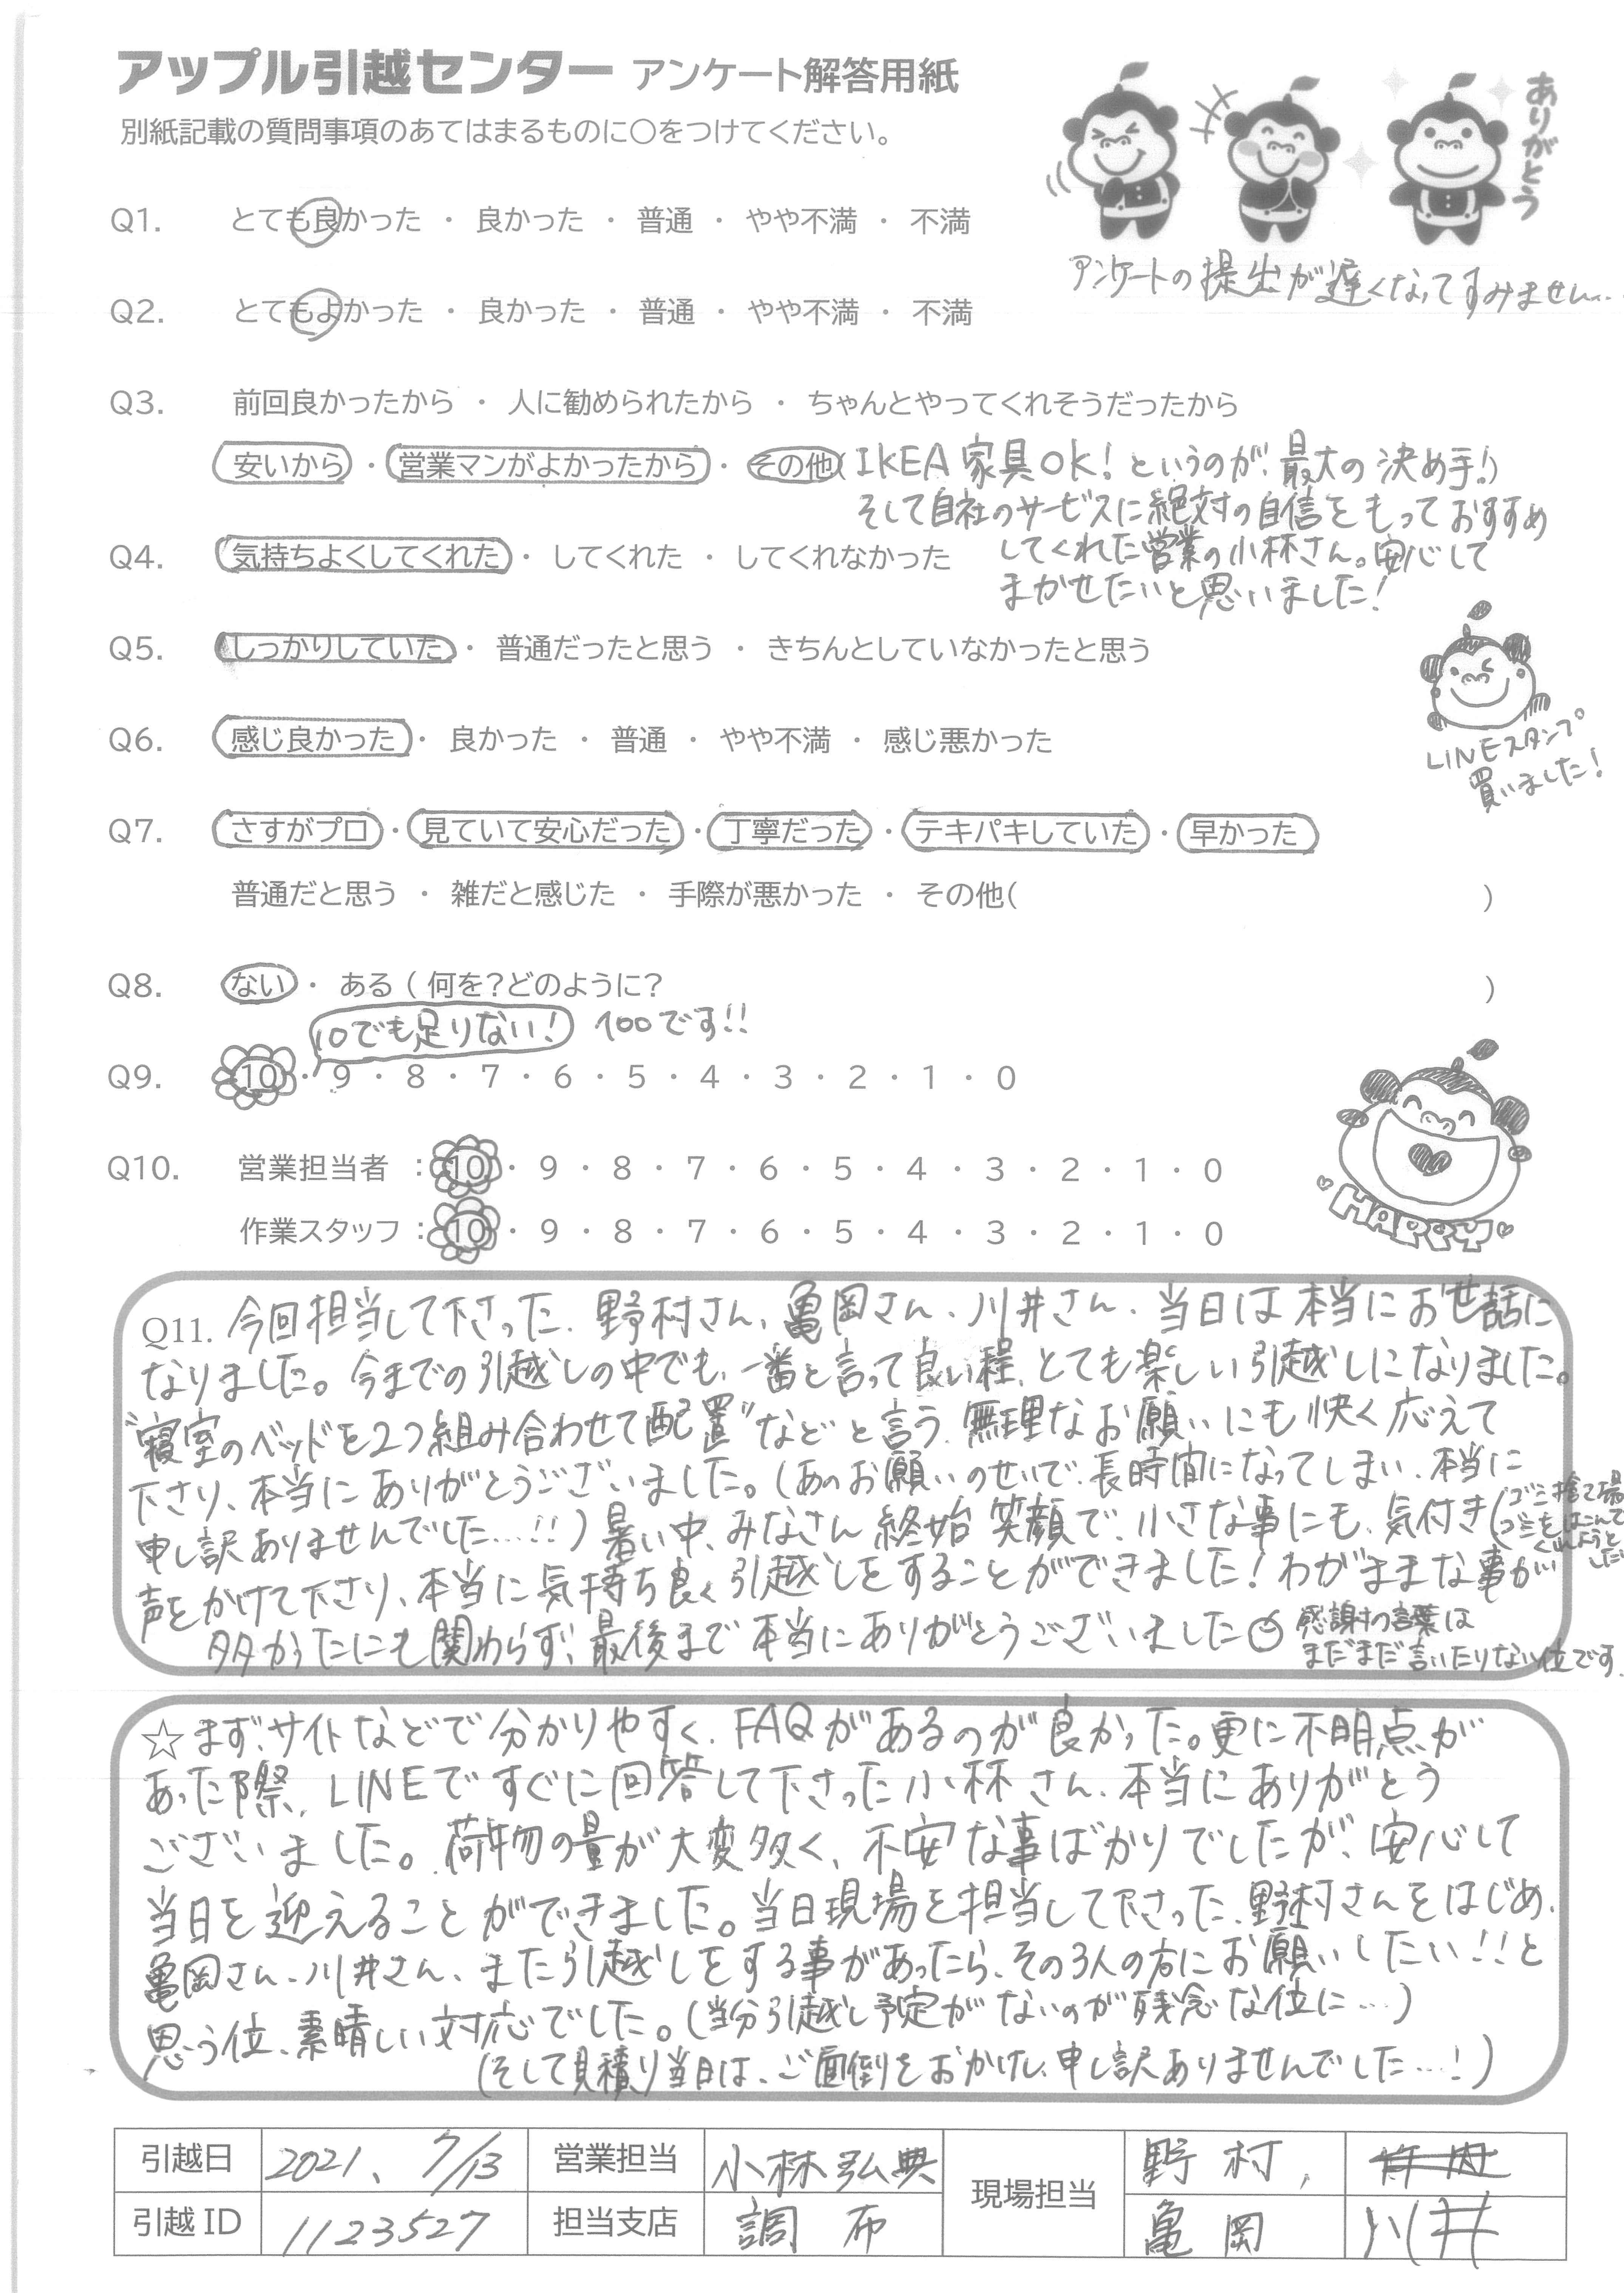 アップル引越センター アンケート解答用紙
別紙記載の質問事項のあてはまるものに○をつけてください。
ありがとう
アンケートの提出が遅くなってすみません…
Q1. とても良かった ・ 良かった ・ 普通 ・ やや不満 ・ 不満
Q2. とてもよかった ・ 良かった ・ 普通 ・ やや不満 ・ 不満
Q3. 前回良かったから ・ 人に勧められたから ・ ちゃんとやってくれそうだったから
安いから ・ 営業マンがよかったから ・ その他(IKEA家具OK!というのが、最大の決め手!)
そして自社のサービスに絶対の自信をもっておすすめ
してくれた営業の小林さん。安心して
まかせたいと思いました!
Q4. 気持ちよくしてくれた ・ してくれた ・ してくれなかった
Q5. しっかりしていた ・ 普通だったと思う ・ きちんとしていなかったと思う
LINEスタンプ
買いました!
Q6. 感じ良かった ・ 良かった ・ 普通 ・ やや不満 ・ 感じ悪かった
Q7. さすがプロ ・ 見ていて安心だった ・ 丁寧だった ・ テキパキしていた ・ 早かった
普通だと思う ・ 雑だと感じた ・ 手際が悪かった ・ その他( )
Q8. ない ・ ある ( 何を?どのように? )
10でも足りない! 100です!!
Q9. 10 ・ 9 ・ 8 ・ 7 ・ 6 ・ 5 ・ 4 ・ 3 ・ 2 ・ 1 ・ 0
Q10. 営業担当者 : 10 ・ 9 ・ 8 ・ 7 ・ 6 ・ 5 ・ 4 ・ 3 ・ 2 ・ 1 ・ 0
作業スタッフ : 10 ・ 9 ・ 8 ・ 7 ・ 6 ・ 5 ・ 4 ・ 3 ・ 2 ・ 1 ・ 0
HAPPY
Q11. 今回担当して下さった、野村さん、亀岡さん、川井さん、当日は本当にお世話に
なりました。今までの引越しの中でも、一番と言って良い程、とても楽しい引越しになりました。
"寝室のベッドを2つ組み合わせて配置"などと言う、無理なお願いにも快く応えて
下さり、本当にありがとうございました。(あのお願いのせいで、長時間になってしまい、本当に
申し訳ありませんでした…!!)暑い中、みなさん終始笑顔で、小さな事にも、気付き(ゴミ捨て場
ゴミをはこんで
くれようと
した
声をかけて下さり、本当に気持ち良く引越しをすることができました!わがままな事が
多かったにも関わらず、最後まで本当にありがとうございました
感謝の言葉は
まだまだ言いたりない位です。
☆まず、サイトなどで分かりやすく、FAQがあるのが良かった。更に不明点が
あった際、LINEですぐに回答して下さった小林さん、本当にありがとう
ございました。荷物の量が大変多く、不安な事ばかりでしたが、安心して
当日を迎えることができました。当日現場を担当して下さった、野村さんをはじめ、
亀岡さん、川井さん、また引越しをする事があったら、その3人の方にお願いしたい!!と
思う位、素晴しい対応でした。(当分引越し予定がないのが残念な位に…)
(そして見積り当日は、ご面倒をおかけし、申し訳ありませんでした…!)
引越日 2021、7/13 営業担当 小林弘典 現場担当 野村,
引越ID 1123527 担当支店 調布 亀岡 川井